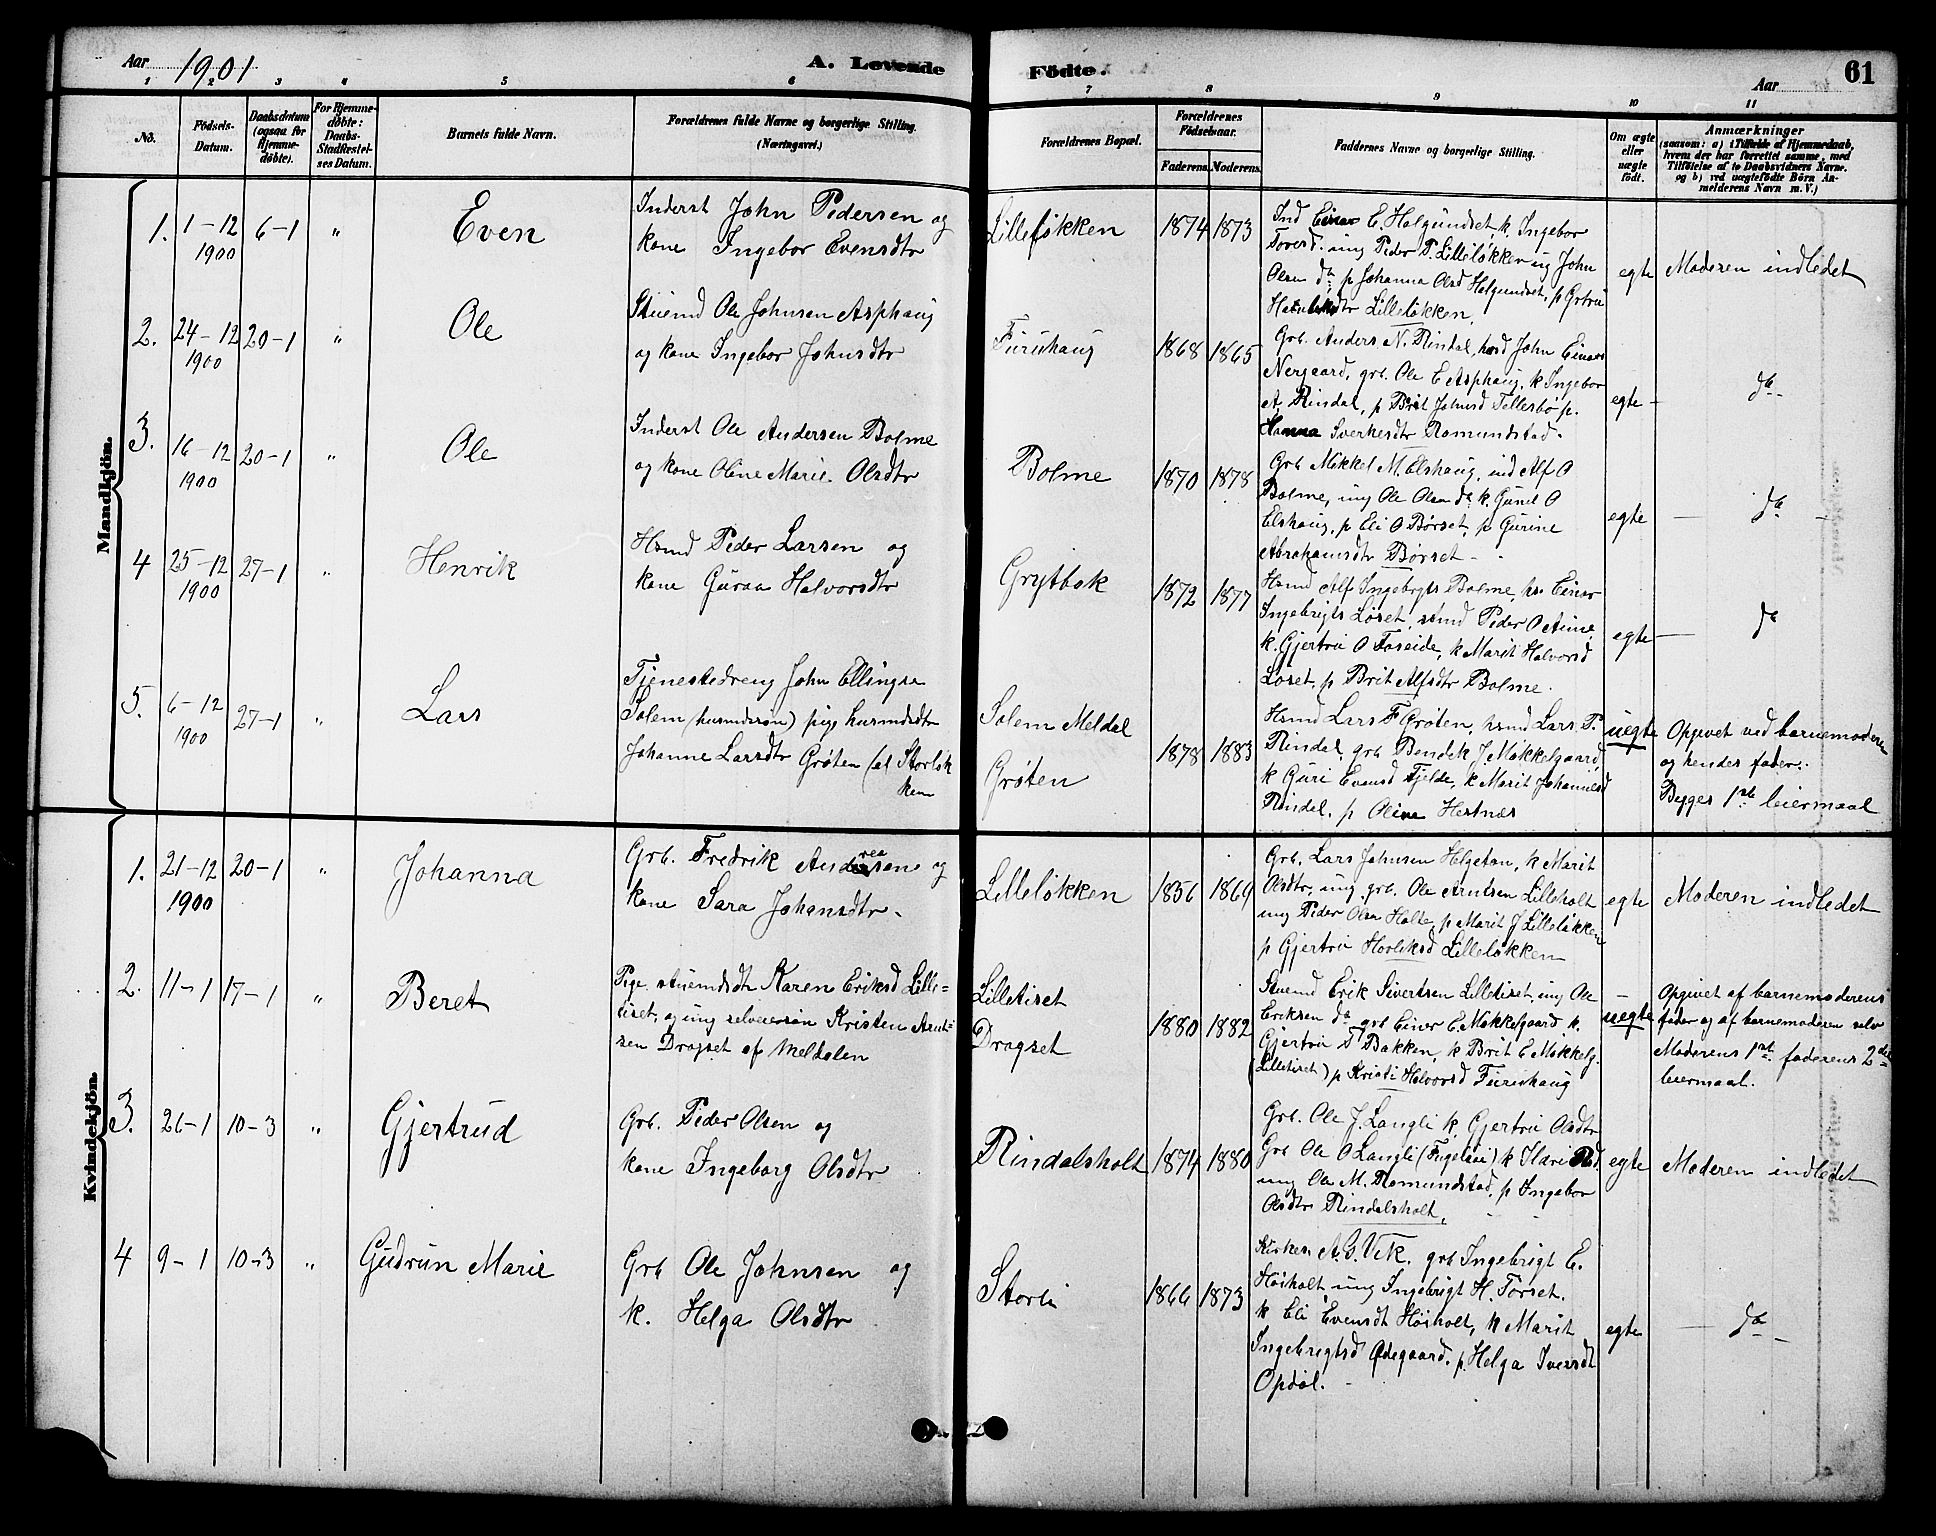 Aar 1901
A. Levende
Födte.
Aar
61
1 2 3 4 5 6 7 8 9 10 11
No.
Födsels-
Datum.
Daabsdatum
(ogsaa for
Hjemme-
döbte).
For Hjemme-
döbte:
Daabs-
Stadfæstel-
ses Datum.
Barnets fulde Navn.
Forældrenes fulde Navne og borgerlige Stilling.
(Næringsvei.)
Forældrenes Bopæl.
Forældrenes
Födselsaar.
Faderens. Moderens.
Faddernes Navne og borgerlige Stilling.
Om ægte
eller
uægte
födt.
Anmærkninger
(saasom: a) i Tilfælde af Hjemmedaab,
hvem der har forrettet samme, med
Tilföielse af to Daabsvidners Navne.
og b) ved uægtefödte Börn An-
melderens Navn m. V.)
Mandkjön.
1. 1-12 1900 6-1 "
Even
Inderst John Pedersen og
kone Ingebor Evensdtr
Lilleløkken
1874 1873
Ind Einar E. Helgundset, k. Ingebor
Toresd. ung Peder P. Lilleløkken ug John
Olsen do p Johanna Olsd Helgundset, p Grtru
Lilleløkken.
egte
Moderen indledet
2. 24-12 1900 20-1 "
Ole
Stuemd Ole Johnsen Asphaug
og kone Ingebor Johnsdtr
Furuhaug
1868 1865
Grb. Anders N. Rindal, hsd John Einars
Nergaard, grb. Ole E Asphaug, k Ingebor
A. Rindal, p Brit Johnsd Tellesbø p.
Hanna Sverkesdtr Romundstad.
egte
do
3. 16-12 1900 20-1 "
Ole
Inderst Ole Andersen Bolme
og kone Oline Marie Olsdtr
Bolme
1870 1878
Grb Mikkel M. Elshaug, ind Alf O
Bolme, ung Ole Olsen do k. Gunel O
Elshaug, p Eli O Børset, p Gurine
Abrahamsdtr Børset
egte
do
4 25-12 1900 27-1 "
Henrik
Hsmd Peder Larsen og
kone Guraa Halvorsdtr
Grytbak
1872 1877
Hsmd Alf Ingebrgts Bolme, hs. Einar
Ingebrigts Løset, hsmd Peder O Aune
k. Gjertru O Faseide, k Marit Halvorsd
Løset, p Brit Alfsdtr Bolme.
egte
do
5. 6-12 1900 27-1 "
Lars
Tjenestedreng John Ellingsen
Solem (husmdsøn) pige husmdsdtr
Johanne Larsdtr Grøten (el Storløk
ken
Solem Meldal
Grøten
1878 1883
Hsmd Lars F Grøten, hsmd Lars P.
Rindal, grb Bendik J. Møkkelgaard
k Guri Evensd Fjelde, k Marit Johannesd
Rindal, p Oline Hestnæs
uegte
Opgivet ved barnemoderen
og hendes fader.
Begges 1ste leiermaal
Kvindekjön.
1. 21-12 1900 20-1 "
Johanna
Grb. Fredrik Andreasen og
kone Sara Johansdtr.
Lilleløkken
1856 1869
Grb. Lars Johnsen Helgetun, k Marit
Olsdtr, ung. grb. Ole Arntsen Lilleholt
ung Peder Olsen Holte, p Marit J Lilleløkken
p Gjertru Lilleløkken
egte
Moderen indledet
2. 11-1 17-1 "
Beret
Pige stuemdsdt Karen Eriksd Lille-
tiset, og ung selveiersøn Kristen Arnt-
sen Dragset af Meldalen
Lilletiset
Dragset
1880 1882
Stuemd Erik Sivertsen Lilletiset, ung Ole
Eriksen do grb Einer E. Møkkelgaard k.
Gjertru T Bakken, k Brit E Møkkelg.
(Lilletiset) p Kristi Halvorsd Furuhaug
uegte
Opgivet af barnemoderens
fader og af barnemoderen selv
Moderens 1ste faderens 2det
leiermaal.
3. 26-1 10-3 "
Gjertrud
Grb. Peder Olsen og
kone Ingeborg Olsdtr
Rindalsholt
1874 1880
Grb. Ole J. Langli k. Gjertru Olsdtr
Grb Ole O Langli (Fugelaai) k Ildri Rd.
ung Ole M. Romundstad, p Ingebor
Olsdtr Rindalsholt,
egte
Moderen indledet
4 9-1 10-3 "
Gudrun Marie
Grb Ole Johnsen og
k. Helga Olsdtr
Storli
1866 1873
Kirkes. A. G. Vik. grb Ingebrigt E.
Høiholt ung Ingebrigt H. Torset.
k Eli Evensdt Høiholt, k Marit
Ingebrigtsd Ødegaard. p. Helga Iversdt
Opdøl.
egte
do